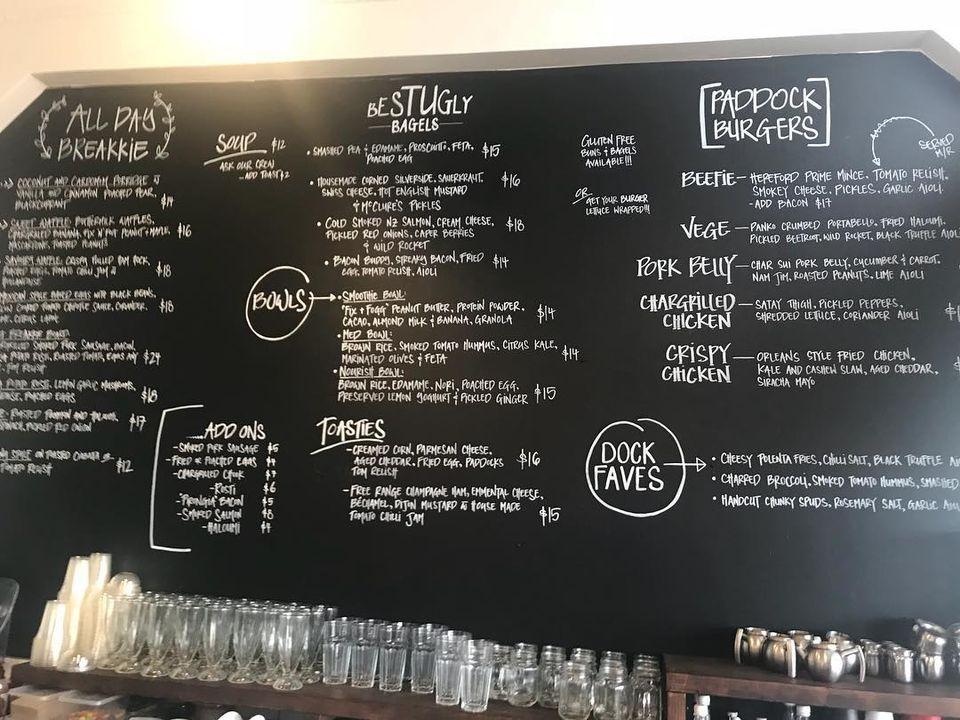 ALL DAY
BREAKKIE
COCONUT AND CARDOMM PORRIDGE
VANILLA AND CINNAMON POACHED PEAR,
BLACKCURRANT
$14
SWEET WAFFLE: BUTTERMILK WAFFLES,
BANANA, FIX N FOGG PEANUT MAPLE,
ROASTED PEANUTS
$16
SAVOURY WAFFLE: CRISPY PULLED HAM HOCK,
POACHED EGGS, TOMATO CHILLI JAM &
$18
MEXICAN STYLE BAKED EGGS WITH BLACK BEANS,
SAUCE, CORIANDER
$18
SMOKED PORK SAUSAGE, BACON,
POTATO ROSTI, ROASTED TOMATO, EGGS ANY
$24
POTATO ROSTI, LEMON GARLIC MUSHROOMS,
POACHED EGGS
$18
ROASTED PUMPKIN AND HALOUMI,
SPINACH, PICKLED RED ONION
$17
ON TOASTED CIABATTA &
TOMATO RELISH
$12
SOUP $12
ASK OUR CREW
- ADD TOAST $2
BEST UGLY
BAGELS
• SMASHED PEA & EDAMAME, PROSCIUTTO, FETA,
POACHED EGG $15
• HOUSEMADE CORNED SILVERSIDE, SAUERKRAUT,
SWISS CHEESE, HOT ENGLISH MUSTARD
& McCLURE'S PICKLES $16
• COLD SMOKED NZ SALMON, CREAM CHEESE,
PICKLED RED ONIONS, CAPER BERRIES
& WILD ROCKET $18
• BACON BUDDY, STREAKY BACON, FRIED
EGG, TOMATO RELISH, AIOLI $14
BOWLS
• SMOOTHIE BOWL:
"FIX & FOGG" PEANUT BUTTER, PROTEIN POWDER,
CACAO, ALMOND MILK & BANANA, GRANOLA $14
• MED BOWL:
BROWN RICE, SMOKED TOMATO HUMMUS, CITRUS KALE,
MARINATED OLIVES & FETA $14
• NOURISH BOWL:
BROWN RICE, EDAMAME, NORI, POACHED EGG,
PRESERVED LEMON YOGHURT & PICKLED GINGER $15
ADD ONS
- SMOKED PORK SAUSAGE $5
- FRIED OR POACHED EGGS $4
- CHARGRILLED CHOOK $7
- ROSTI $6
- BACON $5
- SMOKED SALMON $8
- HALOUMI $4
TOASTIES
- CREAMED CORN, PARMESAN CHEESE,
AGED CHEDDAR, FRIED EGG, PADDOCKS
TOM RELISH $16
- FREE RANGE CHAMPAGNE HAM, EMMENTAL CHEESE,
BÉCHAMEL, DIJON MUSTARD & HOUSE MADE
TOMATO CHILLI JAM $15
GLUTEN FREE
BUNS & BAGELS
AVAILABLE!!!
OR
GET YOUR BURGER
LETTUCE WRAPPED!!!
PADDOCK
BURGERS
SERVED
M/R
BEEFIE - HEREFORD PRIME MINCE, TOMATO RELISH,
SMOKEY CHEESE, PICKLES, GARLIC AIOLI
- ADD BACON $17
VEGE - PANKO CRUMBED PORTABELLO, FRIED HALOUMI,
PICKLED BEETROOT, WILD ROCKET, BLACK TRUFFLE AIOLI
PORK BELLY - CHAR SUI PORK BELLY, CUCUMBER & CARROT,
NAM JIM, ROASTED PEANUTS, LIME AIOLI
CHARGRILLED
CHICKEN - SATAY THIGH, PICKLED PEPPERS,
SHREDDED LETTUCE, CORIANDER AIOLI
CRISPY
CHICKEN - ORLEANS STYLE FRIED CHICKEN,
KALE AND CASHEW SLAW, AGED CHEDDAR,
SIRACHA MAYO
DOCK
FAVES
• CHEESY POLENTA FRIES, CHILLI SALT, BLACK TRUFFLE
• CHARRED BROCCOLI, SMOKED TOMATO HUMMUS, SMASHED
• HANDCUT CHUNKY SPUDS, ROSEMARY SALT, GARLIC